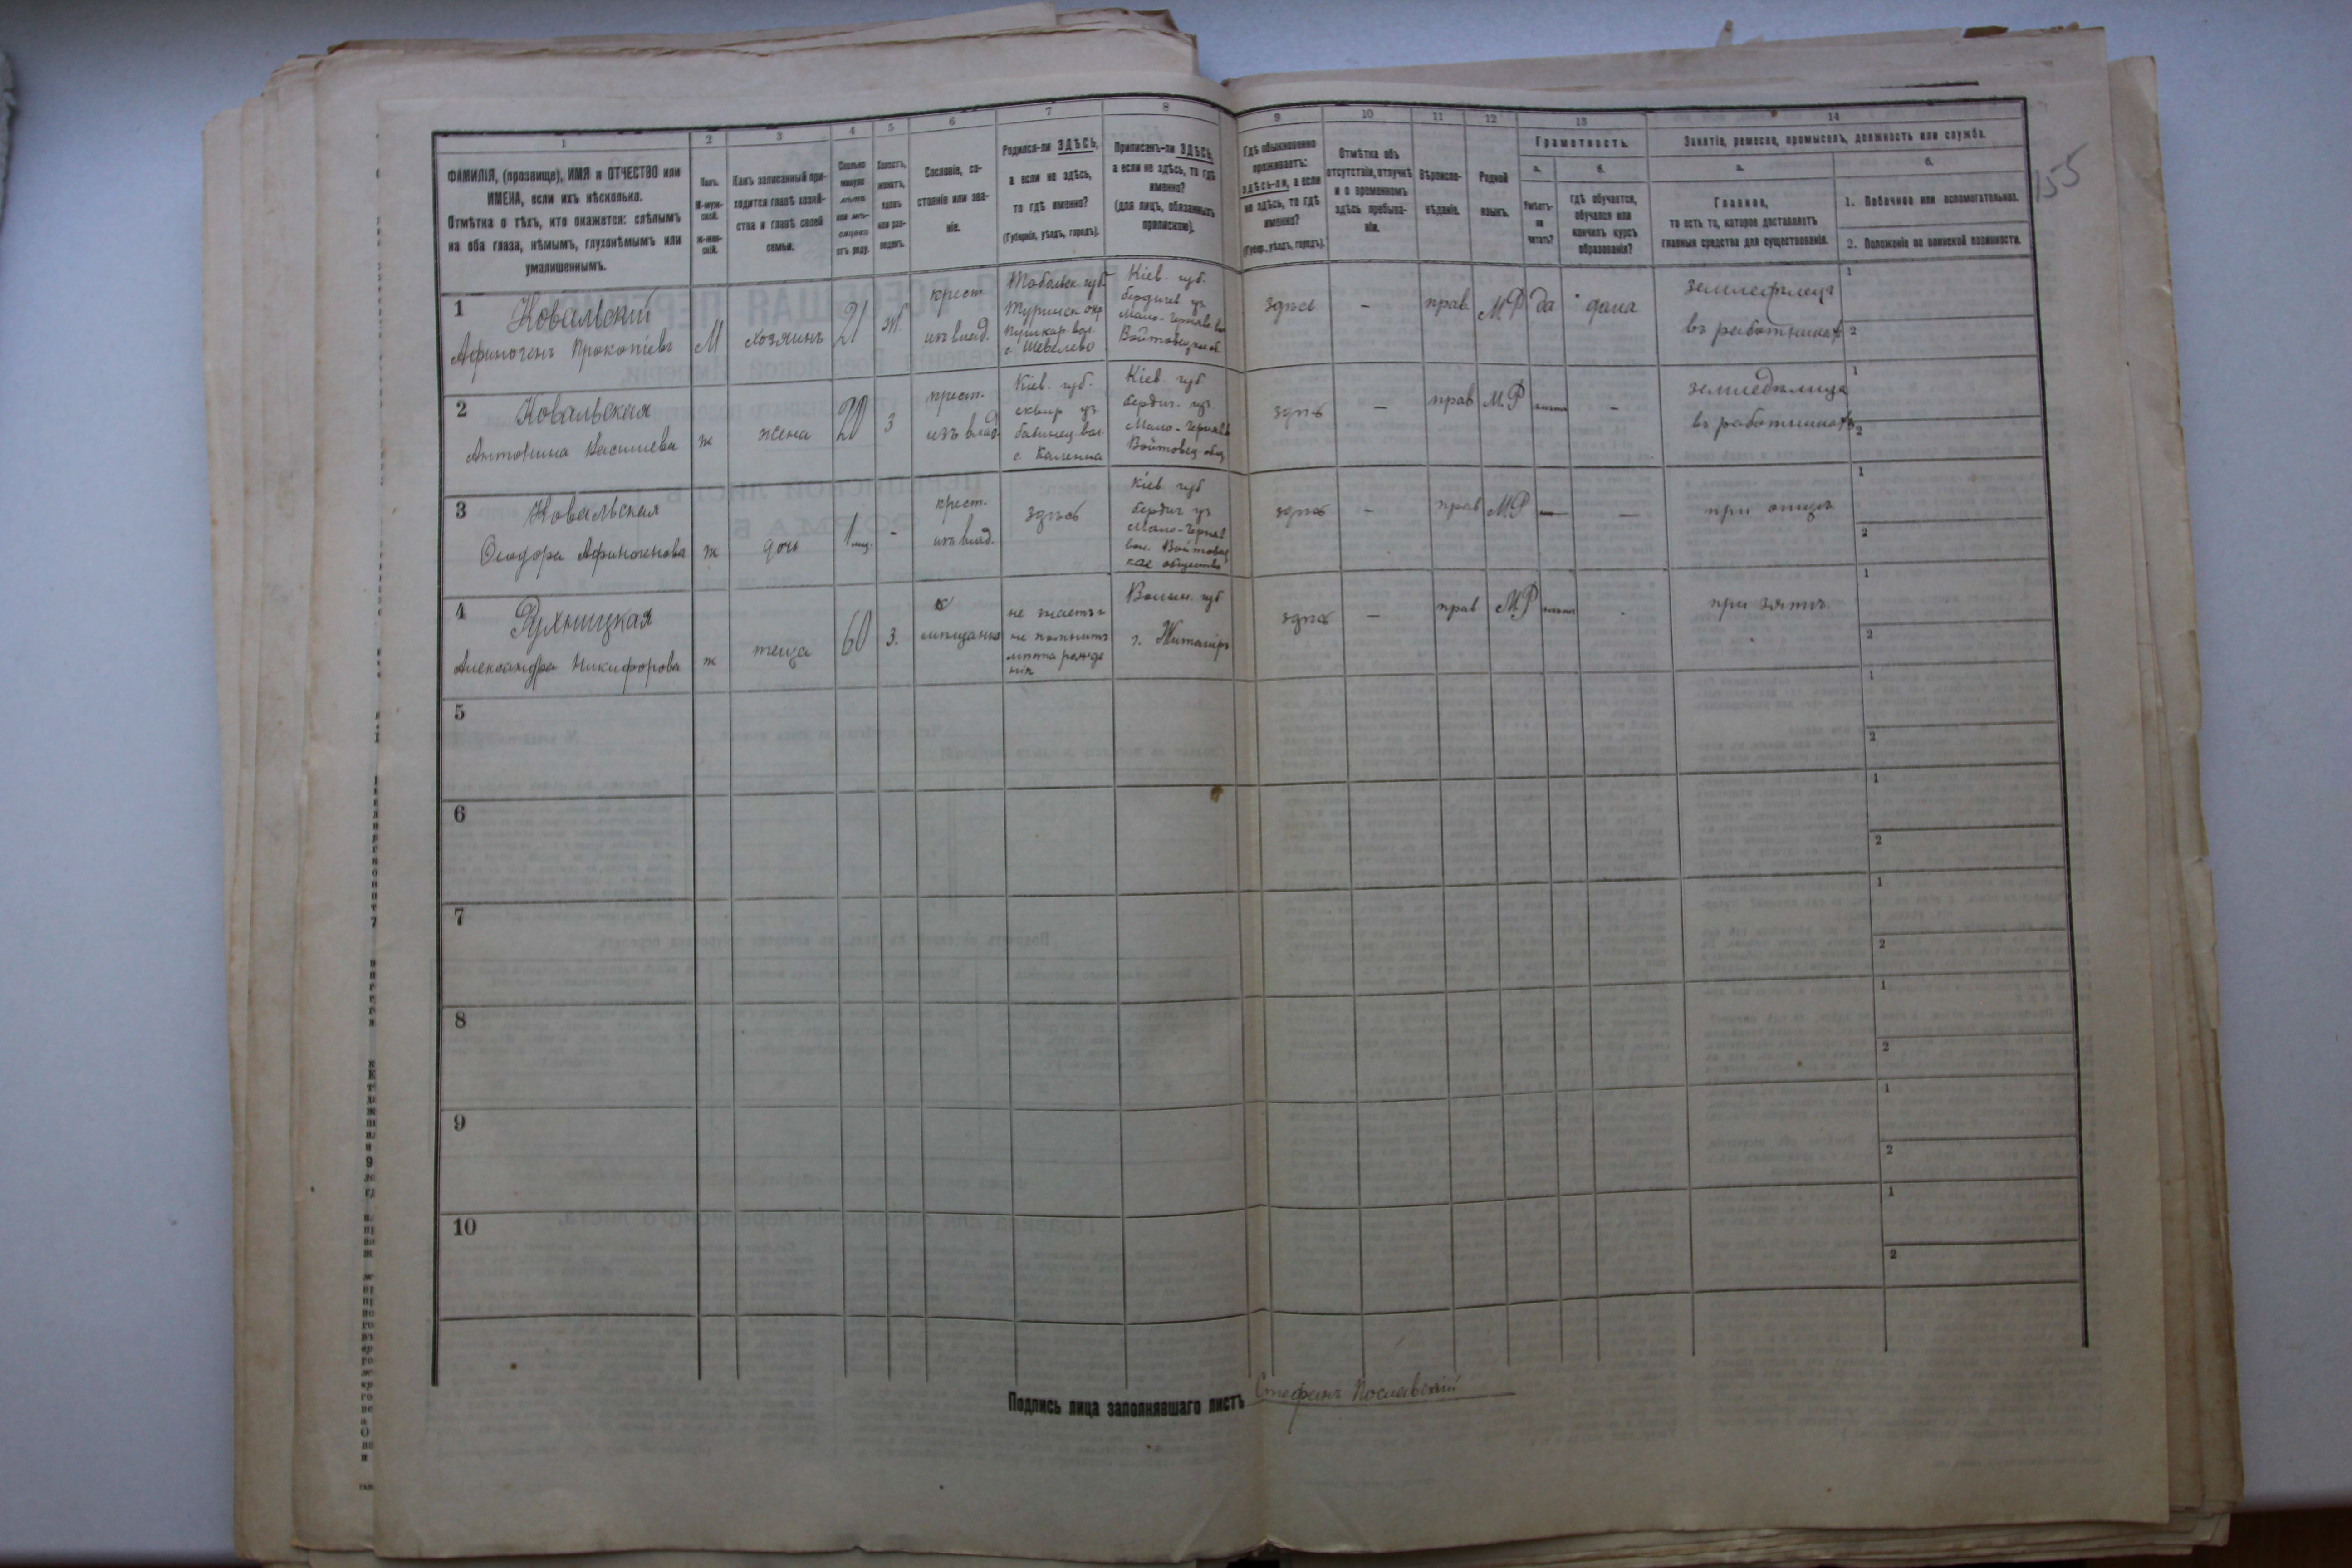 155
1
2
3
4
5
6
7
8
9
10
11
12
13
14
ФАМИЛІЯ, (прозвище), ИМЯ и ОТЧЕСТВО или
ИМЕНА, если ихъ нѣсколько.
Отмѣтка о тѣхъ, кто окажется: слѣпымъ
на оба глаза, нѣмымъ, глухонѣмымъ или
умалишеннымъ.
Полъ.
М-муж-
ской.
Ж-жен-
скій.
Какъ записанный при-
ходится главѣ хозяй-
ства и главѣ своей
семьи.
Сколько
минуло
лѣтъ
или мѣ-
сяцевъ
отъ роду.
Холостъ,
женатъ,
вдовъ
или раз-
веденъ.
Сословіе, со-
стояніе или зва-
ніе.
Родился-ли ЗДѢСЬ,
а если не здѣсь,
то гдѣ именно?
(Губернія, уѣздъ, городъ).
Приписанъ-ли ЗДѢСЬ,
а если не здѣсь, то гдѣ
именно?
(для лицъ, обязанныхъ
припискою).
Гдѣ обыкновенно
проживаетъ:
здѣсь-ли, а если
не здѣсь, то гдѣ
именно?
(Губерн., уѣздъ, городъ).
Отмѣтка объ
отсутствіи, отлучкѣ
и о временномъ
здѣсь пребыва-
ніи.
Вѣроиспо-
вѣданіе.
Родной
языкъ.
Грамотность.
а.
Умѣетъ-
ли
читать?
б.
гдѣ обучается,
обучался или
кончилъ курсъ
образованія?
Занятіе, ремесло, промыселъ, должность или служба.
а.
Главное,
то есть то, которое доставляетъ
главныя средства для существованія.
б.
1. Побочное или вспомогательное.
2. Положеніе по воинской повинности.
1
Ковальскій
Афиногенъ Прокопіевъ
М
хозяинъ
21
Ж.
крест
изъ влад.
Тобольск. губ.
Туринск. окр
Кушкар. вол.
с. Шевелево
Кіев. губ.
бердичев уз
Мало-Черняв. во
здѣсь
-
прав.
М Р
да
дома
землефлецъ
въ работникахъ
1
2
2
Ковальская
Антонина Васишева
ж
жена
20
З
крест.
изъ влад.
Кіев. губ.
сквир уз
бабинец вол
с. Каленна
Кіев губ
бердич. уз.
Мало-Черняв
Войтовец. общ
здѣсь
-
прав
М.Р
-
землѣделица
въ работникахъ
1
2
3
Ковальская
Феодора Афиногенова
ж
дочь
1 мѣс.
-
крест.
изъ влад.
здѣсь
Кіев губ
бердич уз
Мало-Черняв
вол. Войтовец
кае общество
здѣсь
-
прав
М.Р
-
при отцѣ
1
2
4
Рухницкая
Александра Никифорова
ж
теща
60
З.
мѣщанка
не знаетъ и
не помнитъ
мѣста рожде
нія
Волын. губ
г. Житоміръ
здѣсь
-
прав
М.Р
при зятѣ.
1
2
5
1
2
6
1
2
7
1
2
8
1
2
9
1
2
10
1
2
Подпись лица заполнявшаго листъ Стефанъ Пославскій